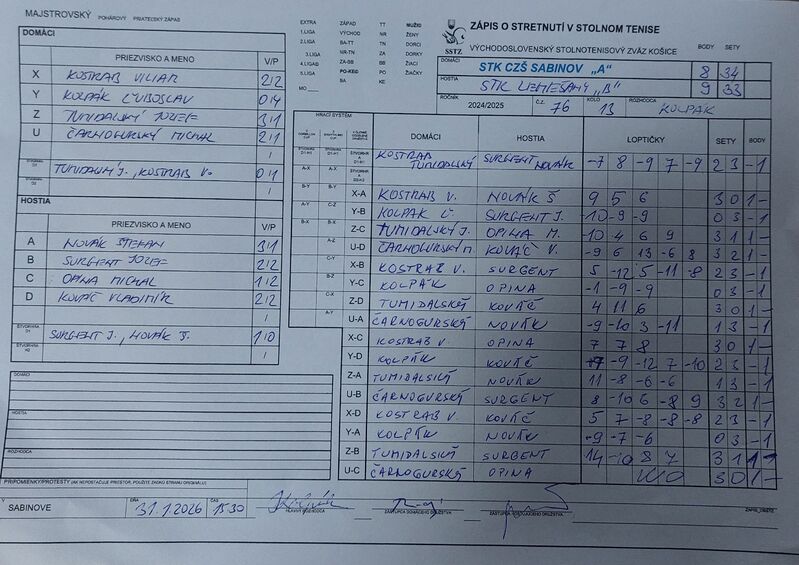 MAJSTROVSKÝ POHÁROVÝ PRIATEĽSKÝ ZÁPAS
EXTRA ZÁPAD TT MUŽI
1.LIGA VÝCHOD NR ŽENY
2.LIGA BA-TT TN DORCI
3.LIGA NR-TN ZA DORKY
4.LIGA ZA-BB BB ŽIACI
5.LIGA PO-KE PO ŽIAČKY
MO BA KE
SSTZ
ZÁPIS O STRETNUTÍ V STOLNOM TENISE
VÝCHODOSLOVENSKÝ STOLNOTENISOVÝ ZVÄZ KOŠICE BODY SETY
DOMÁCI STK CZŠ SABINOV „A“ 8 34
HOSTIA STK LEMEŠANY „B“ 9 33
ROČNÍK 2024/2025 Č.Z. 76 KOLO 13 ROZHODCA KOLPÁK
DOMÁCI
PRIEZVISKO A MENO V/P
X KOSTRAB VILIAM 2/2
Y KOLPÁK ĽUBOSLAV 0/4
Z TUMIDALSKÝ JOZEF 3/1
U ČARNOGURSKÝ MICHAL 2/1
TUMIDALSKÝ J., KOSTRAB V. 0/1
HOSTIA
PRIEZVISKO A MENO V/P
A NOVÁK ŠTEFAN 3/1
B SURGENT JOZEF 2/2
C OPINA MICHAL 1/2
D KOVÁČ VLADIMÍR 2/2
SURGENT J., NOVÁK Š. 1/0
DOMÁCI
HOSTIA
ROZHODCA
HRACÍ SYSTÉM
DOMÁCI HOSTIA LOPTIČKY SETY BODY
KOSTRAB TUMIDALSKÝ SURGENT NOVÁK -7 8 -9 7 -9 2 3 -1
X-A KOSTRAB V. NOVÁK Š 9 5 6 3 0 1-
Y-B KOLPÁK Ľ. SURGENT J. -10 -9 -9 0 3 -1
Z-C TUMIDALSKÝ J. OPINA M. -10 4 6 9 3 1 1-
U-D ČARNOGURSKÝ M. KOVÁČ V. -9 6 13 -6 8 3 2 1-
X-B KOSTRAB V. SURGENT 5 -12 5 -11 -8 2 3 -1
Y-C KOLPÁK OPINA -1 -9 -9 0 3 -1
Z-D TUMIDALSKÝ KOVÁČ 4 11 6 3 0 1-
U-A ČARNOGURSKÝ NOVÁK -9 -10 3 -11 1 3 -1
X-C KOSTRAB V. OPINA 7 7 8 3 0 1-
Y-D KOLPÁK KOVÁČ 7 -9 -12 7 -10 2 3 -1
Z-A TUMIDALSKÝ NOVÁK 11 -8 -6 -6 1 3 -1
U-B ČARNOGURSKÝ SURGENT 8 -10 6 -8 9 3 2 1-
X-D KOSTRAB V. KOVÁČ 5 7 -8 -8 -8 2 3 -1
Y-A KOLPÁK NOVÁK -9 -7 -6 0 3 -1
Z-B TUMIDALSKÝ SURGENT 14 -10 8 7 3 1 1-
U-C ČARNOGURSKÝ OPINA WO 3 0 1-
PRIPOMIENKY/PROTESTY (AK NEPOSTAČUJE PRIESTOR, POUŽITE ZADNÚ STRANU ORIGINÁLU)
V SABINOVE DŇA 31.1.2026 ČAS 15:30
HLAVNÝ ROZHODCA ZÁSTUPCA DOMÁCEHO DRUŽSTVA ZÁSTUPCA HOSŤUJÚCEHO DRUŽSTVA